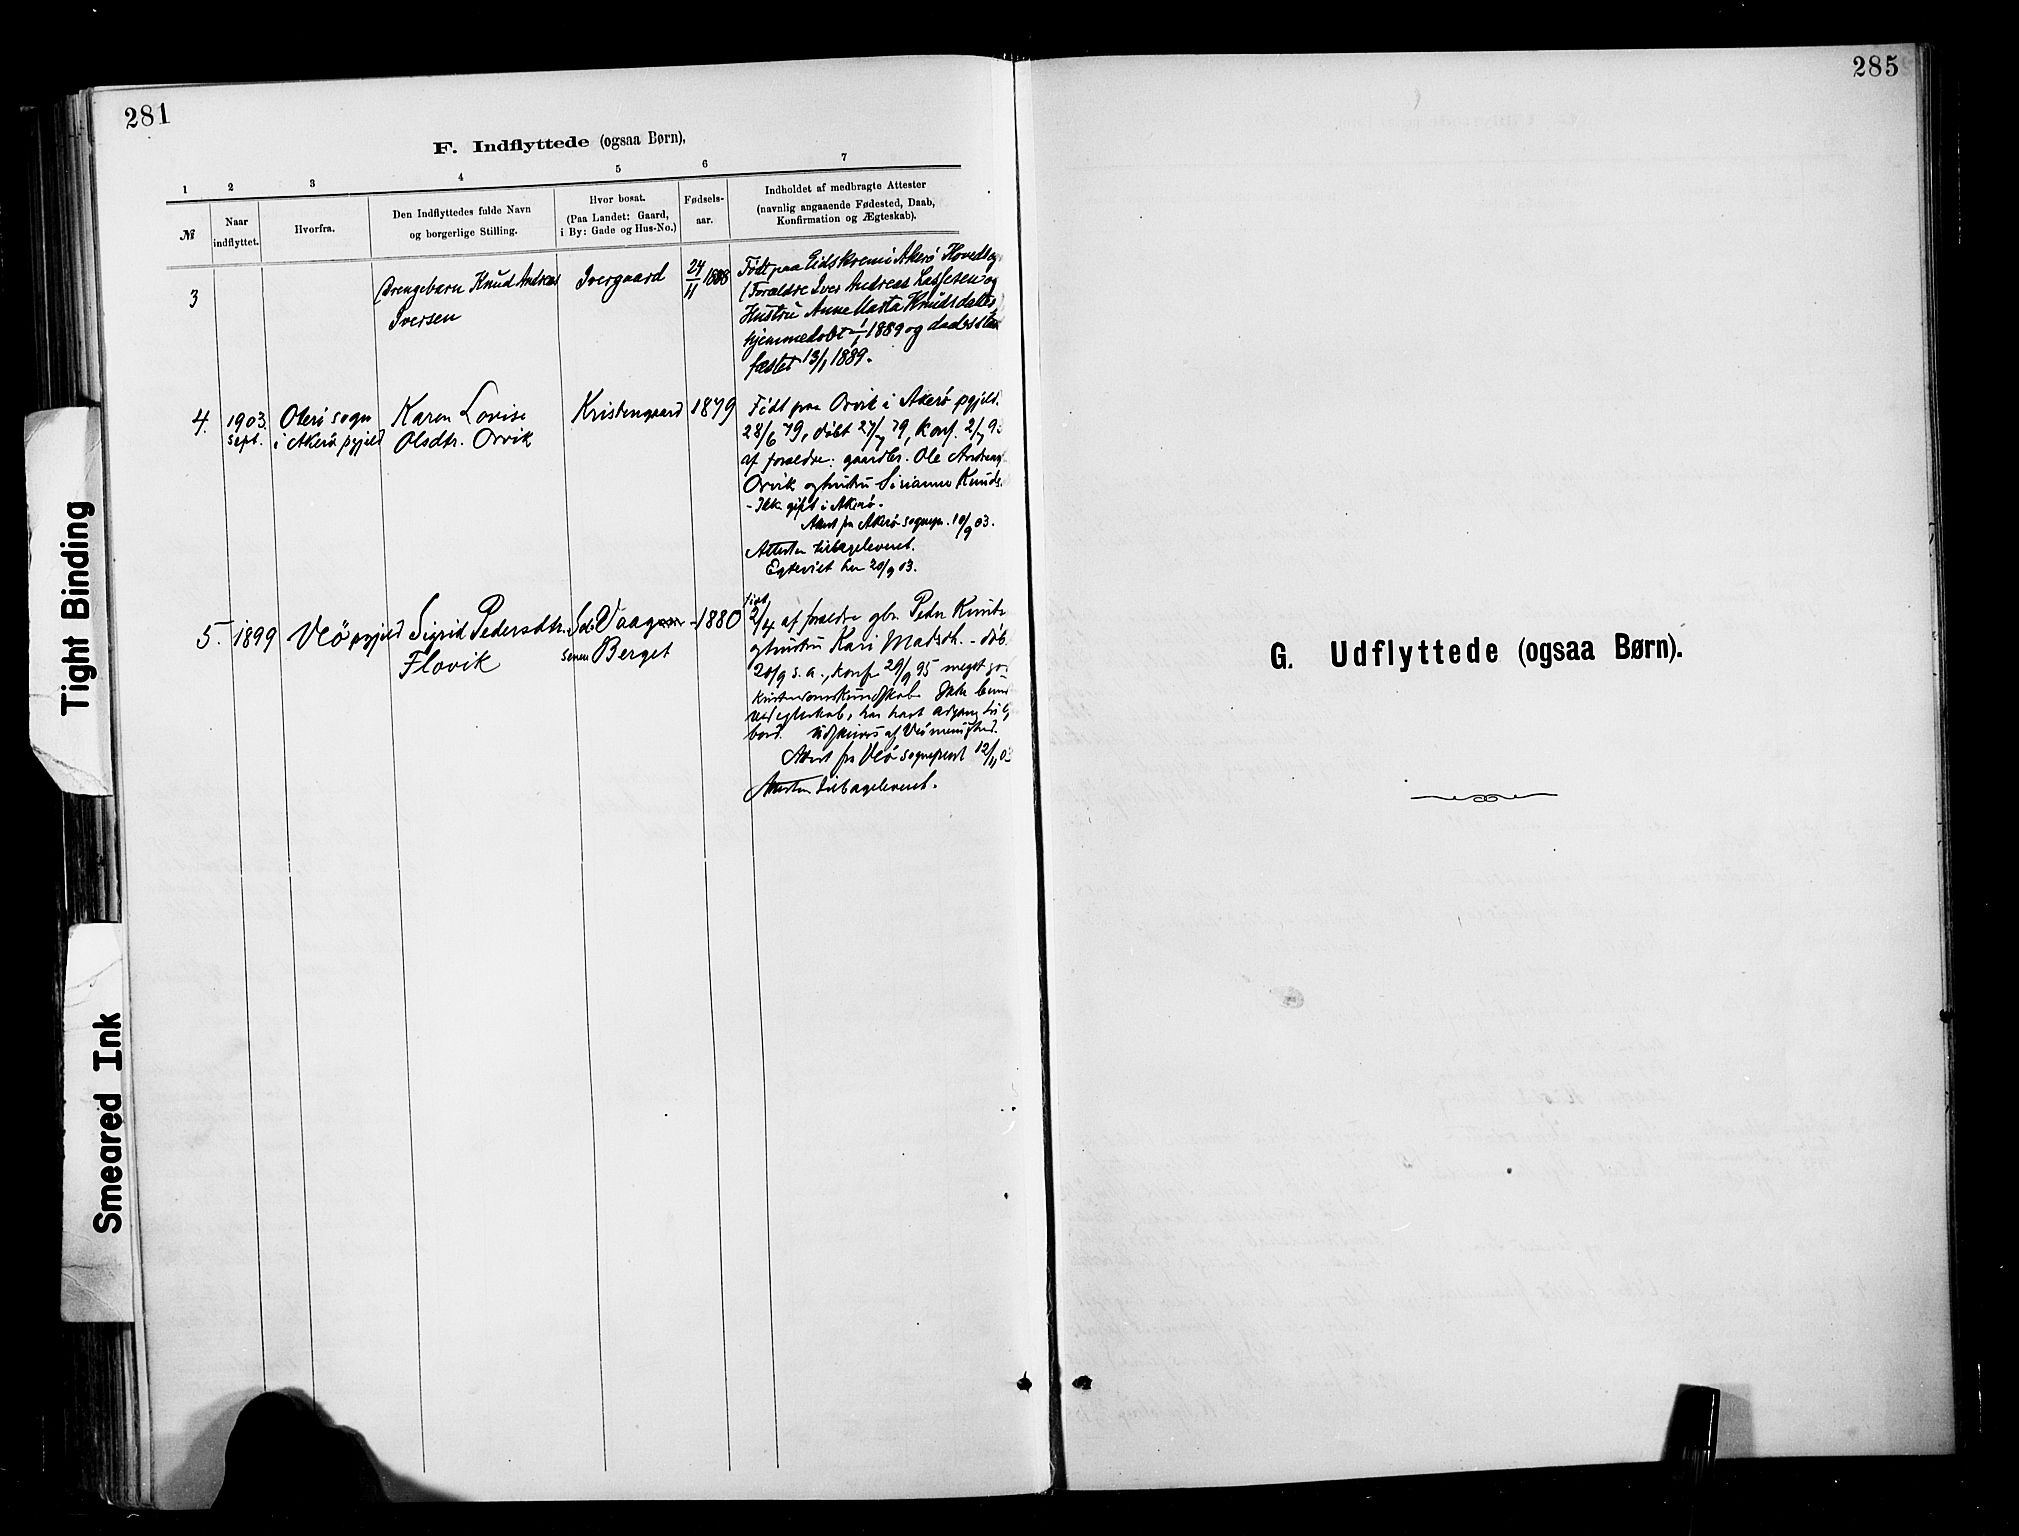 281
F. Indflyttede (ogsaa Børn),
1 2 3 4 5 6 7
№ Naar indflyttet. Hvorfra. Den Indflyttedes fulde Navn og borgerlige Stilling. Hvor bosat. (Paa Landet: Gaard, i By: Gade og Hus-No.) Fødsels-aar. Indholdet af medbragte Attester (navnlig angaaende Fødested, Daab, Konfirmation og Ægteskab).
3 Drengebarn Knud Andreas Ivergaard 24/11 1888 Født paa Eidskrem i Akerø Hovedsogn
Iversen (Forældre Iver Andreas Lassesen og
Hustru Anne Marta Knudsdatter
hjemmedøbt 1/1 1889 og daab stad
fæstet 13/1 1889.
4. 1903 sept. Oterø sogn i Akerø pgjeld Karen Lovise Kristengaard 1879 Født paa Orvik i Akerø pgjeld.
Olsdtr. Orvik 28/6 79, døbt 27/7 79, konf. 2/7 93
af forældre: gaardbr. Ole Andreas
Orvik og hustru Sirianna Knuds.
- Ikke gift i Akerø.
Attest fra Akerø sognepr. 10/9 03.
Attesten tilbageleveret.
Egteviet her 20/9 03.
5. 1899 Veø pgjeld Sigrid Pedersdtr. Vaagen 1880 født
Flovik Berget 2/4 af forældre gbr. Peder Knuts
og hustru Kari Madsdt. - døb.
20/9 s. a., konf. 29/9 95 meget god
kristendomskundskab. Ikke bund
ved egteskab, har havt adgang til
bord. Udskrives af Veø menighed.
Attest fra Veø sogneprest 12/11 03
Attesten tilbageleveret.
Tight Binding
Smeared Ink
285
G. Udflyttede (ogsaa Børn).